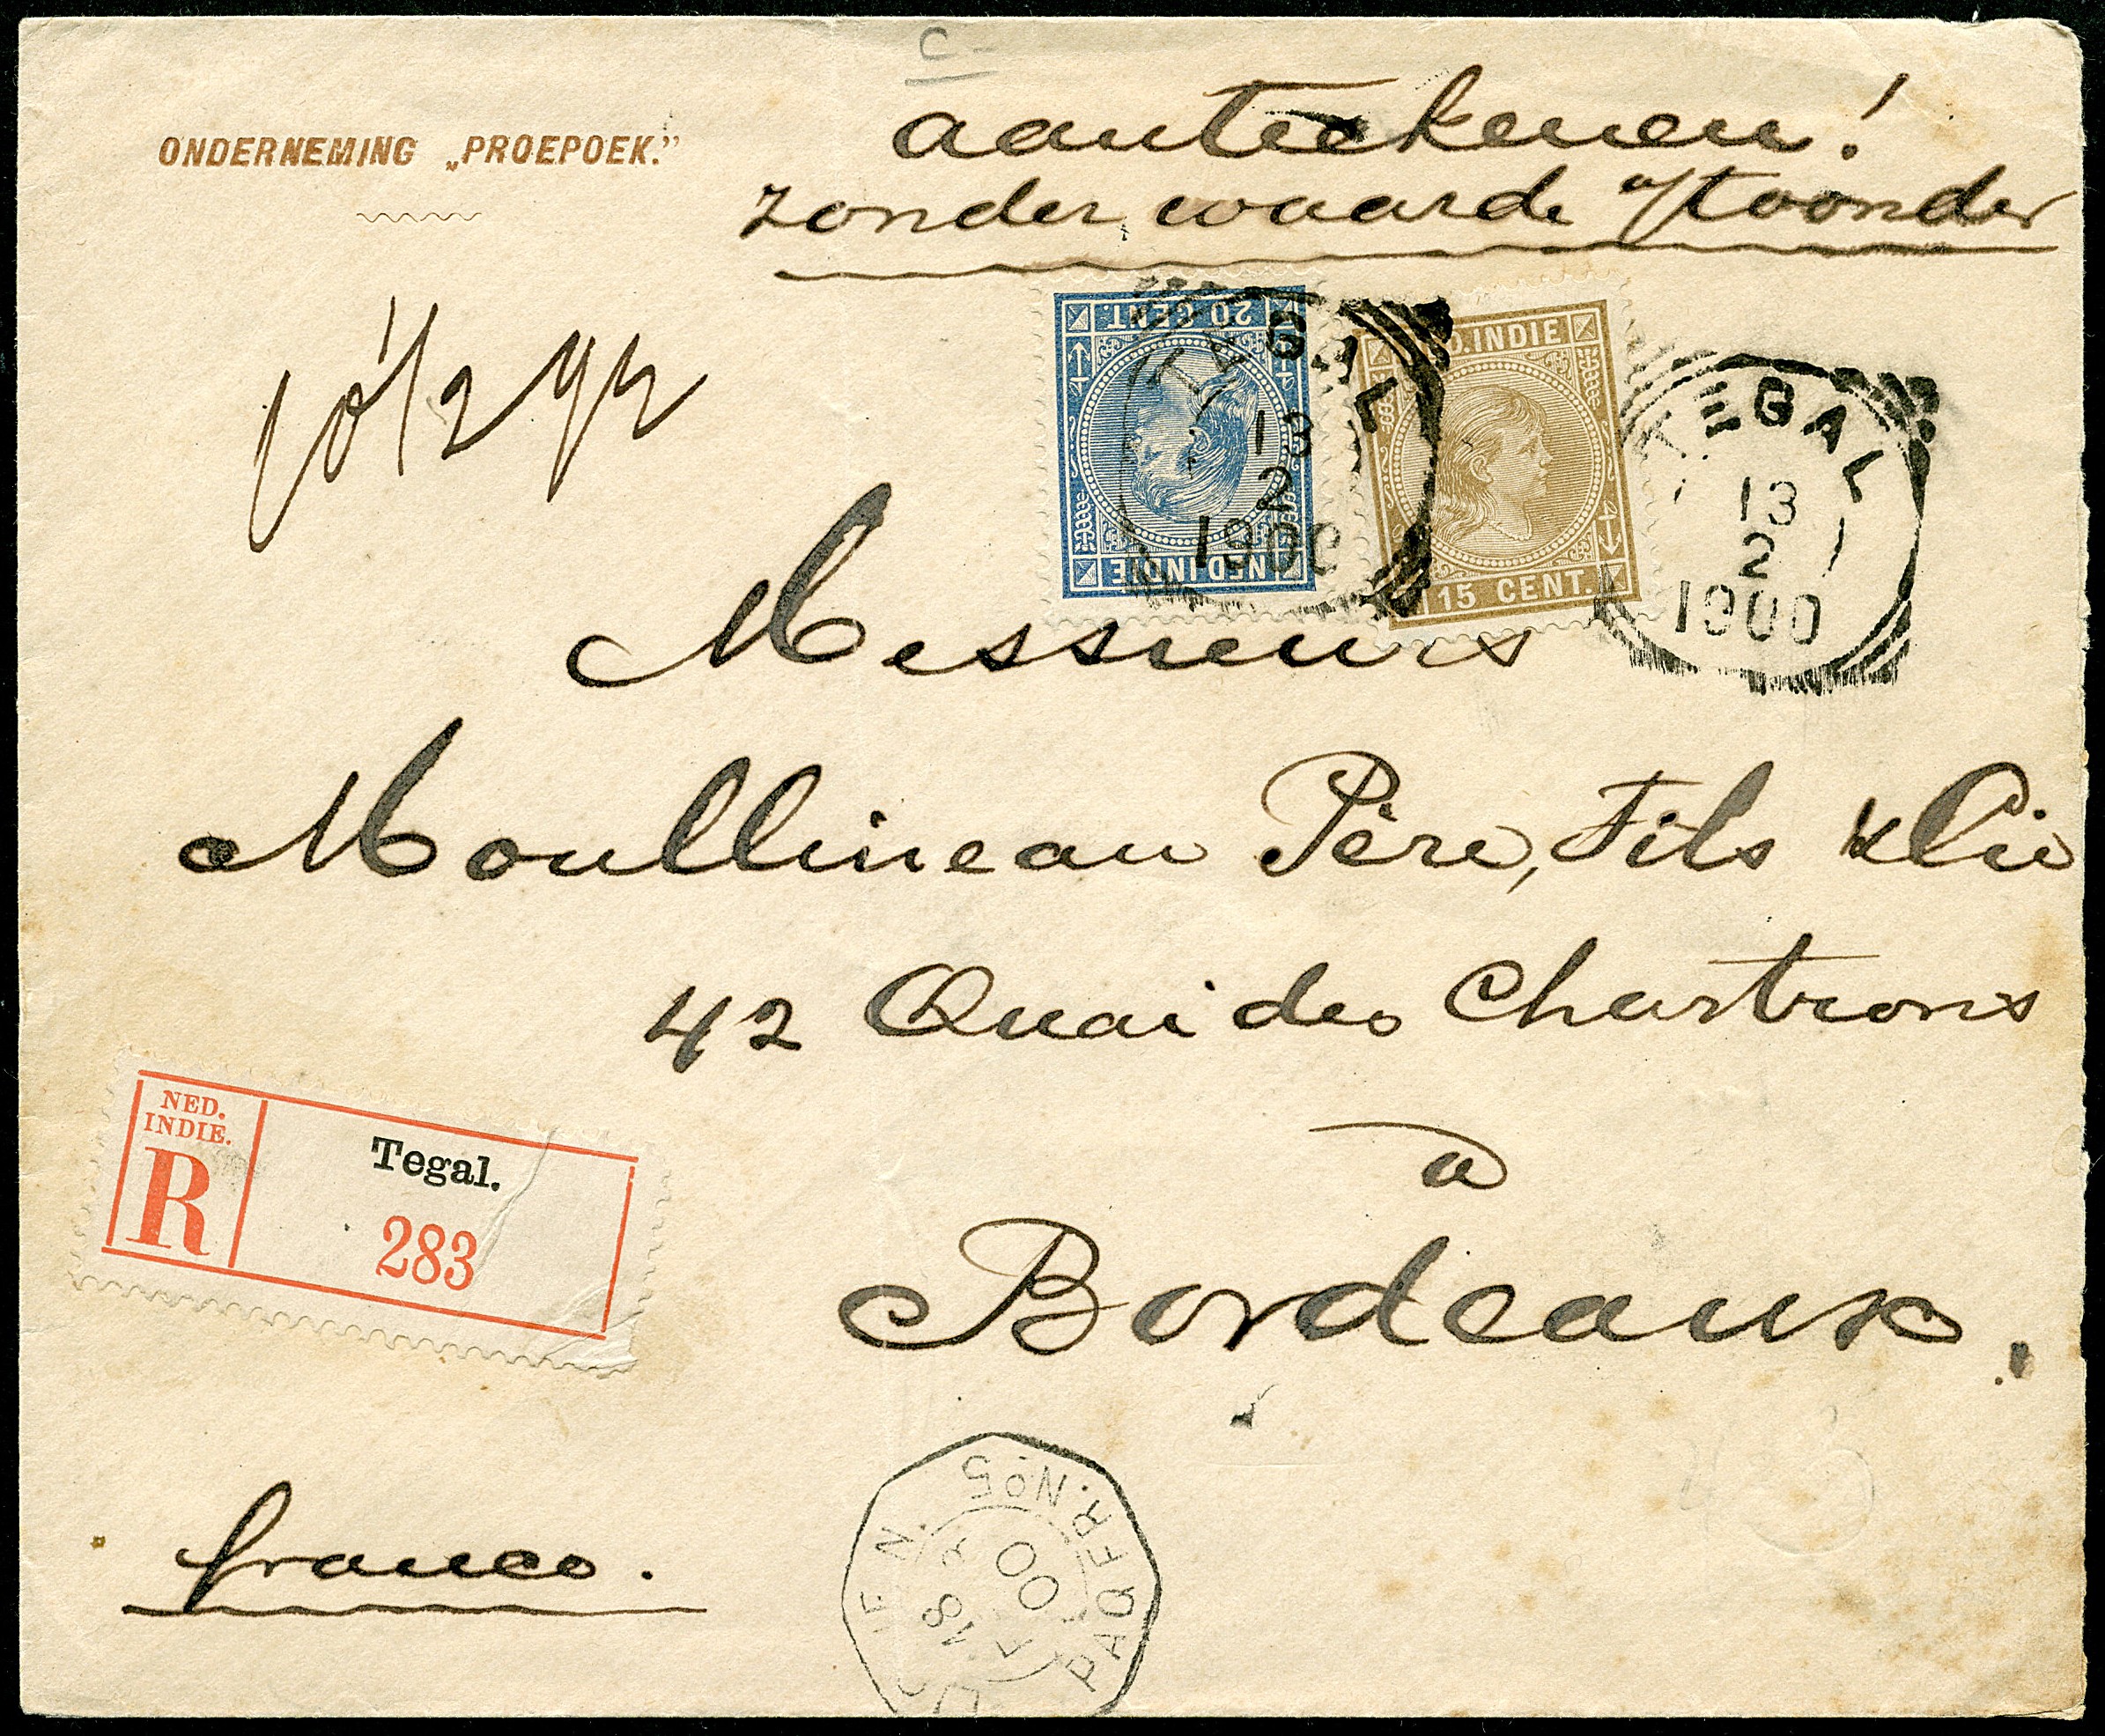 C
ONDERNEMING „PROEPOEK."
aanteekenen!
zonder waarde a/toonder
20 CENT.
NED INDIE
TEGAL
13
2
1900
D. INDIE
15 CENT.
TEGAL
13
2
1900
Messieurs
Moullineau Père, Fils & Cie
42 Quai des Chartrons
à
Bordeaux.
NED.
INDIE.
R
Tegal.
283
franco.
LIGNE N. PAQ FR. No 5
18
00